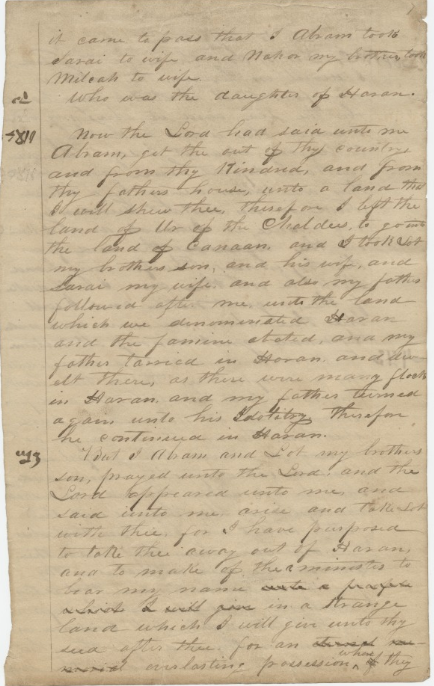 it came to pass that I Abram took
Sarai to wife and Nahor my brother, took
Milcah to wife
Who was the daughter of Haran.
Now the Lord had said unto me
Abram, get the out of thy country
and from thy Kindred, and from
thy fathers house, unto a land that
I will shew thee, therefore I left the
land of Ur of the Chaldees, to go into
the land of Canaan. and I took Lot
my brothers son, and his wife, and
Sarai my wife. and also my father
followed after me, unto the land
which we denominated Haran
and the famine abated, and my
father tarried in Haran and dw
elt there, as there were many flocks
in Haran. and my father turned
again unto his Idolitry therefore
he continued in Haran.
But I Abram and Lot my brothers
son, prayed unto the Lord. and the
Lord appeared unto me, and
said unto me. arise and take Lot
with thee, for I have purposed
to take thee away out of Haran,
and to make of thee a minister to
bear my name in a strange
land which I will give unto thy
seed after thee. for an
everlasting possession when they